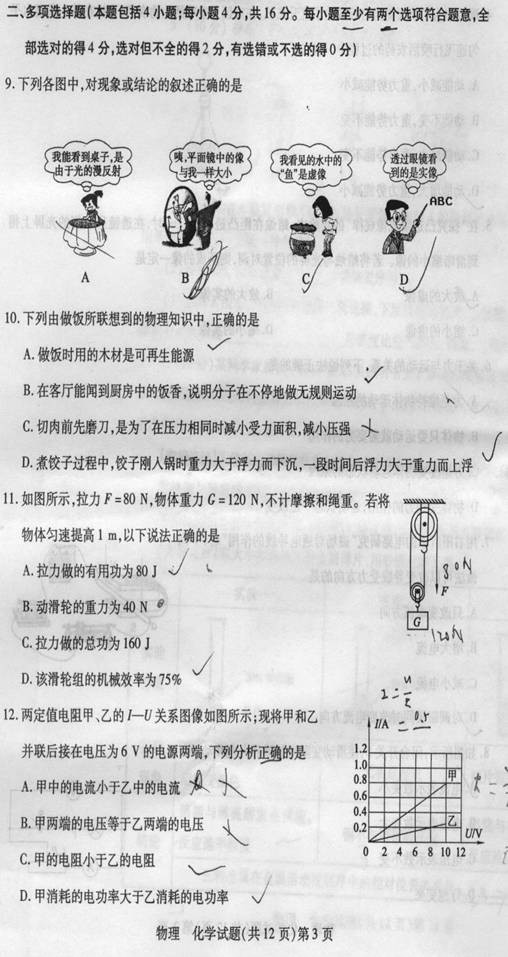 二、多项选择题(本题包括4小题;每小题4分,共16分。每小题至少有两个选项符合题意,全
部选对的得4分,选对但不全的得2分,有选错或不选的得0分)
9.下列各图中,对现象或结论的叙述正确的是
我能看到桌子,是
由于光的漫反射
咦,平面镜中的像
与我一样大小
我看见的水中的
“鱼”是虚像
透过眼镜看
到的是实像
ABC
A
B
C
D
10.下列由做饭所联想到的物理知识中,正确的是
A.做饭时用的木材是可再生能源
B.在客厅能闻到厨房中的饭香,说明分子在不停地做无规则运动
C.切肉前先磨刀,是为了在压力相同时减小受力面积,减小压强
D.煮饺子过程中,饺子刚入锅时重力大于浮力而下沉,一段时间后浮力大于重力而上浮
11.如图所示,拉力F=80 N,物体重力G=120 N,不计摩擦和绳重。若将
物体匀速提高1 m,以下说法正确的是
A.拉力做的有用功为80 J
B.动滑轮的重力为40 N
C.拉力做的总功为160 J
D.该滑轮组的机械效率为75%
F
80N
G
120N
12.两定值电阻甲、乙的I—U关系图像如图所示;现将甲和乙
并联后接在电压为6 V的电源两端,下列分析正确的是
A.甲中的电流小于乙中的电流
B.甲两端的电压等于乙两端的电压
C.甲的电阻小于乙的电阻
D.甲消耗的电功率大于乙消耗的电功率
I/A
1.2
1.0
0.8
0.6
0.4
0.2
甲
乙
U/V
0 2 4 6 8 10 12
物理 化学试题(共12页)第3页